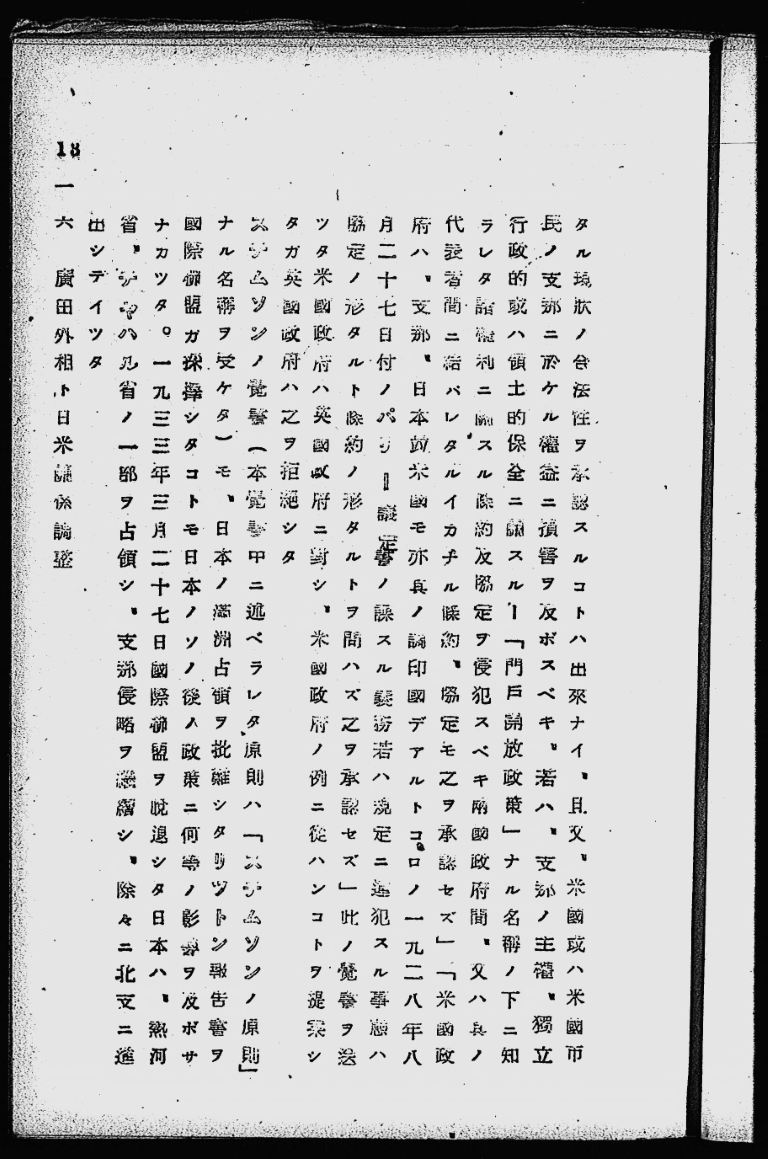 タル現狀ノ合法性ヲ承認スルコトハ出來ナイ、且又、米國或ハ米國市
民ノ支那ニ於ケル權益ニ損害ヲ及ボスベキ、若ハ、支那ノ主權、獨立
行政的或ハ領土的保全ニ關スル―「門戶開放政策」ナル名稱ノ下ニ知
ラレタ諸權利ニ關スル條約及協定ヲ侵犯スベキ兩國政府間、又ハ其ノ
代表者間ニ結バレタルイカナル條約、協定モ之ヲ承認セズ」「米國政
府ハ、支那、日本竝米國モ亦其ノ調印國デアルトコロノ一九二八年八
月二十七日付ノパリー議定書ノ課スル義務若ハ規定ニ違犯スル事態ハ
協定ノ形タルト條約ノ形タルトヲ問ハズ之ヲ承認セズ」此ノ覺書ヲ送
ツタ米國政府ハ英國政府ニ對シ、米國政府ノ例ニ從ハンコトヲ提案シ
タガ英國政府ハ之ヲ拒絕シタ
スチムソンノ覺書(本覺書中ニ述ベラレタ原則ハ「スチムソンノ原則」
ナル名稱ヲ受ケタ)モ、日本ノ滿洲占領ヲ批難シタリツトン報告書ヲ
國際聯盟ガ採擇シタコトモ日本ノソノ後ノ政策ニ何等ノ影響ヲ及ボサ
ナカツタ。一九三三年三月二十七日國際聯盟ヲ脫退シタ日本ハ、熱河
省、チヤハル省ノ一部ヲ占領シ、支那侵略ヲ繼續シ、除々ニ北支ニ進
出シテイツタ
一六 廣田外相ト日米關係調整
18